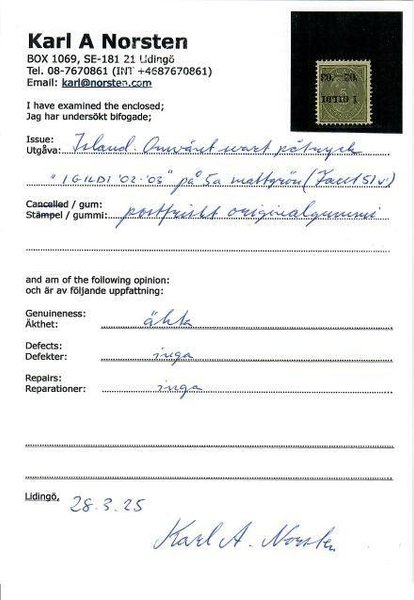 Karl A Norsten
BOX 1069, SE-181 21 Lidingö
Tel. 08-7670861 (INT +4687670861)
Email: karl@norsten.com
I have examined the enclosed;
Jag har undersökt bifogade;
Issue:
Utgåva: Island. Omvänt svart påtryck
"I GILDI '02-'03" på 5a mattgrön (Facit 51v)
Cancelled / gum:
Stämpel / gummi: postfriskt originalgummi
and am of the following opinion:
och är av följande uppfattning:
Genuineness:
Äkthet: äkta
Defects:
Defekter: inga
Repairs:
Reparationer: inga
Lidingö, 28.3.25
Karl A. Norsten
I GILDI
'02-'03